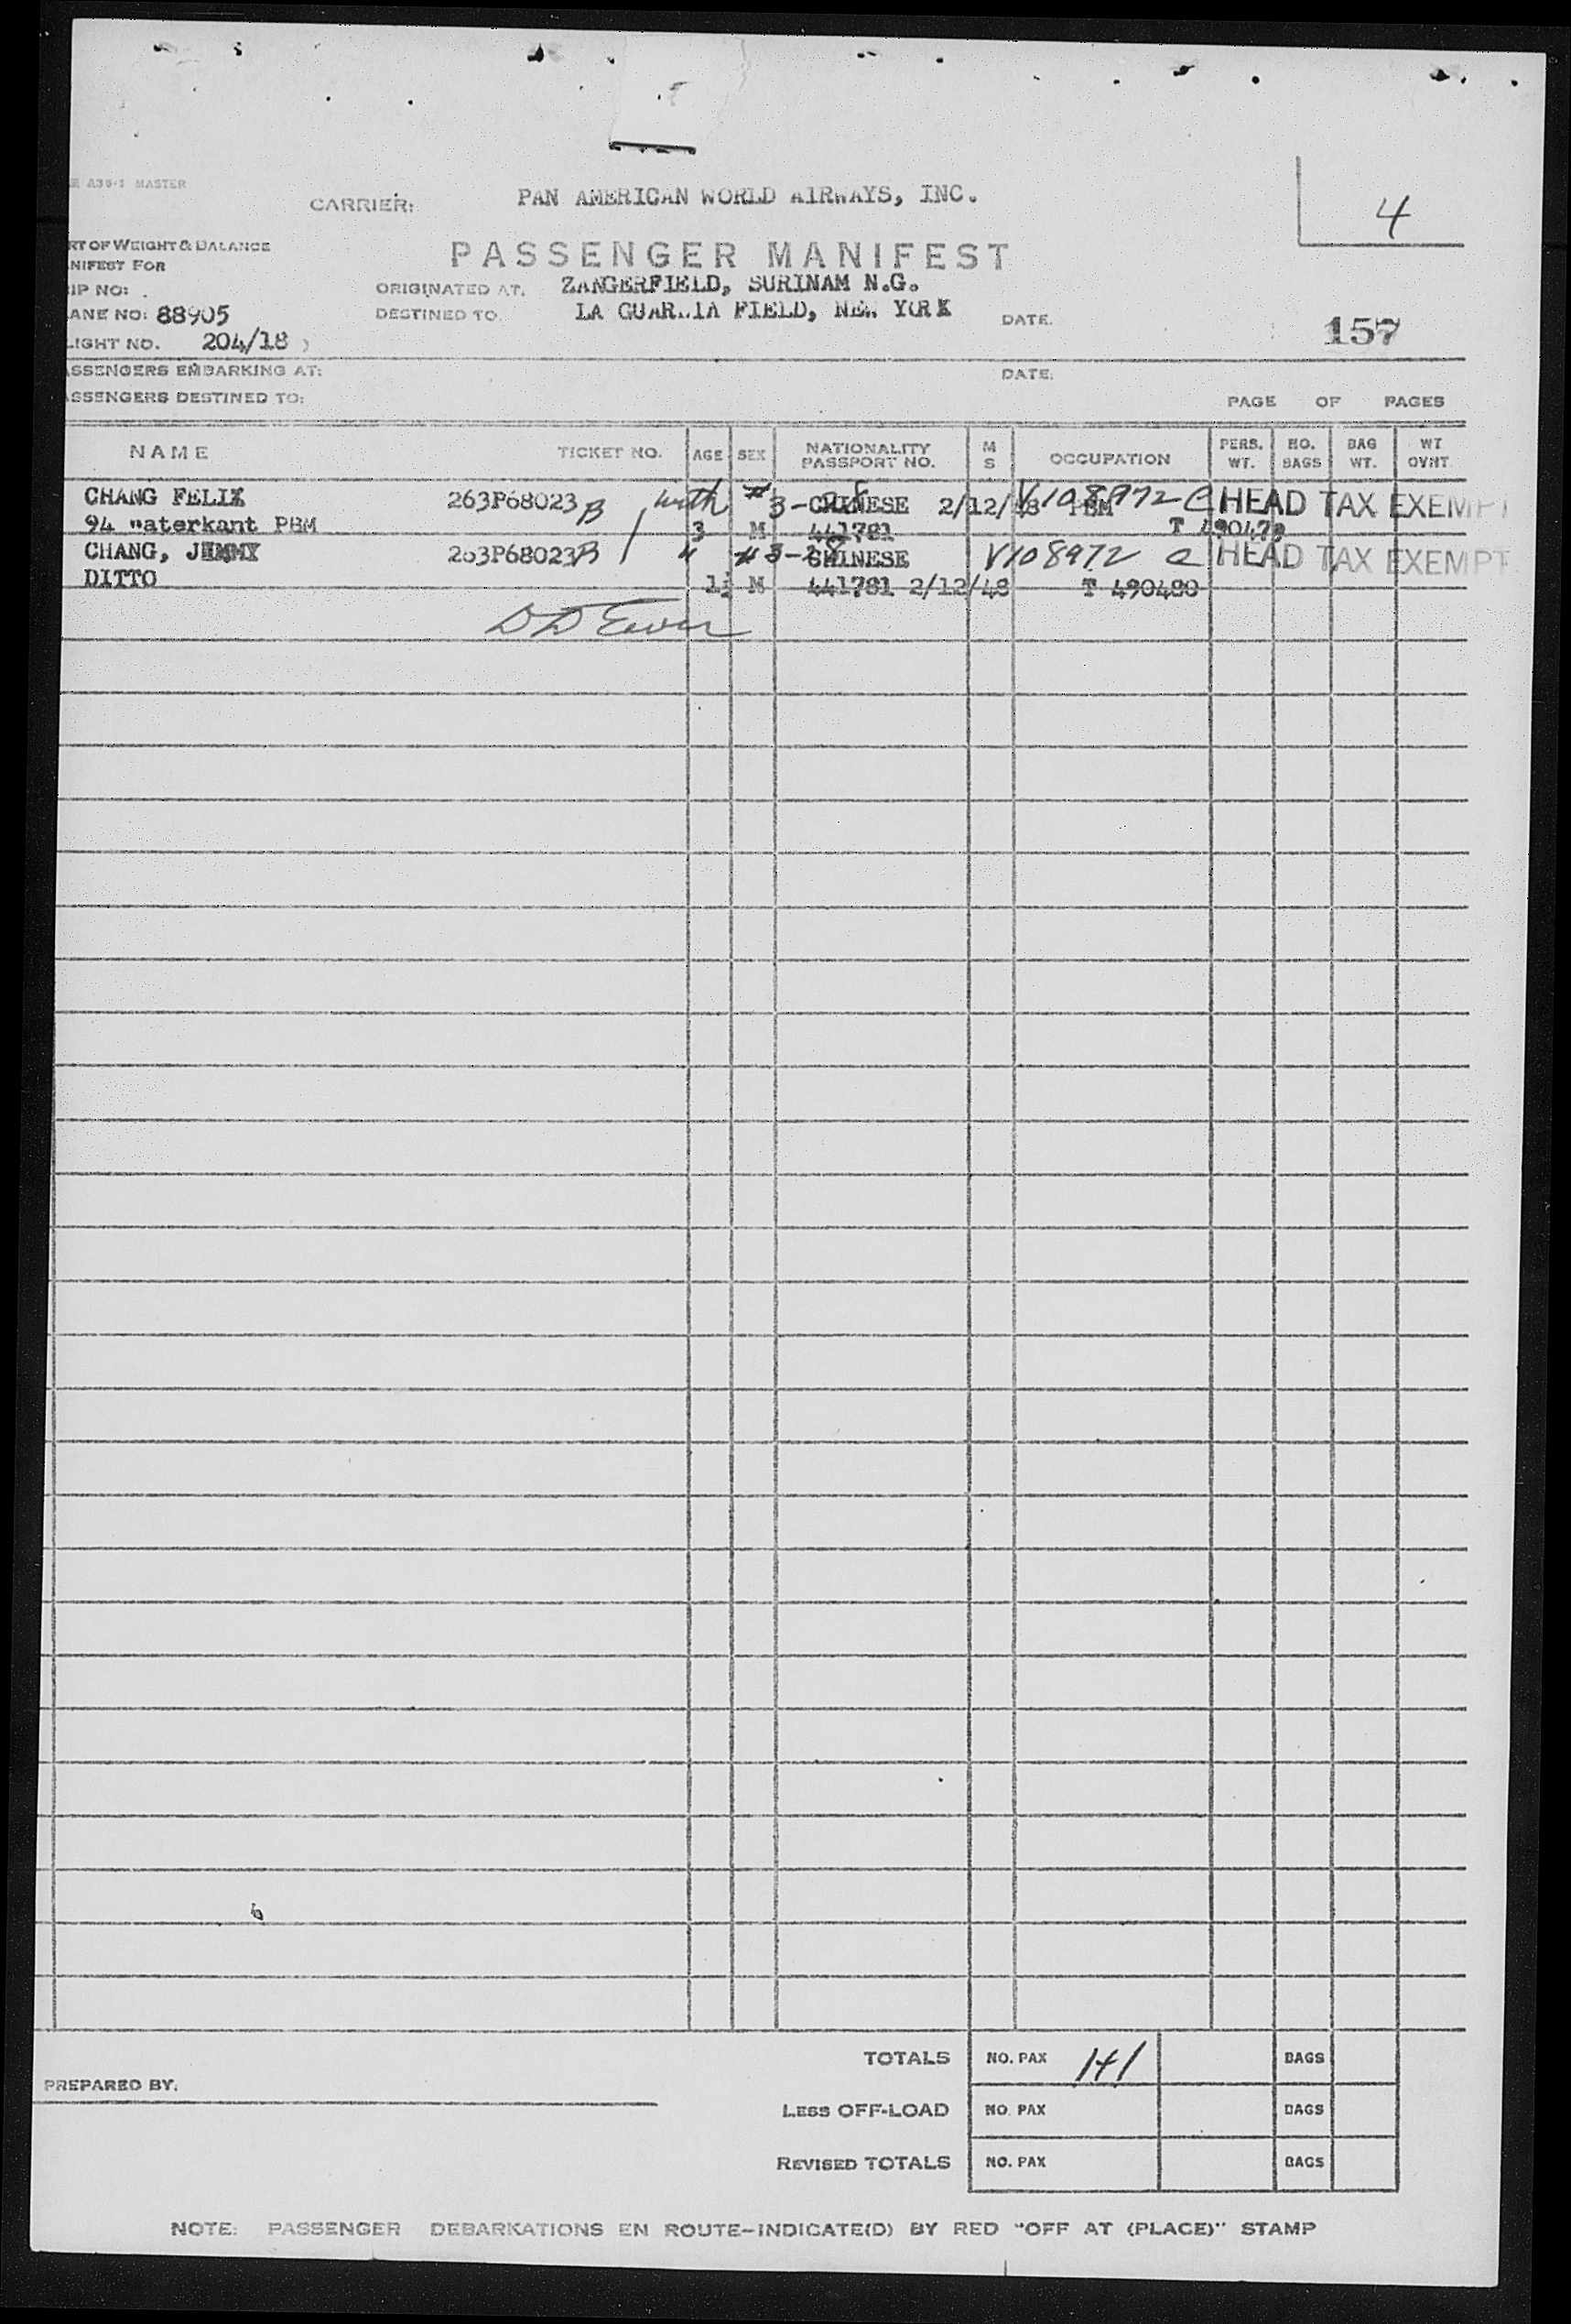 A35-1 MASTER
CARRIER: PAN AMERICAN WORLD AIRWAYS, INC.
4
RT OF WEIGHT & BALANCE
NIFEST FOR
PASSENGER MANIFEST
IP NO:
ORIGINATED AT. ZANGERFIELD, SURINAM N.G.
ANE NO: 88905
DESTINED TO. LA GUARDIA FIELD, NEW YORK DATE.
157
LIGHT NO. 204/18
ASSENGERS EMBARKING AT: DATE:
ASSENGERS DESTINED TO: PAGE OF PAGES
NAME TICKET NO. AGE SEX NATIONALITY PASSPORT NO. M S OCCUPATION PERS. WT. NO. BAGS BAG WT. WT OVHT
CHANG FELIX 263P68023 B with #3-28 CHINESE 2/12/48 PBM V108972 C HEAD TAX EXEMPT
94 Waterkant PBM 3 M 441781 T 490479
CHANG, JIMMY 263P68023 B " #3-28 CHINESE V108972 C HEAD TAX EXEMPT
DITTO 1½ M 441781 2/12/48 T 490480
TOTALS NO. PAX 1+1 BAGS
PREPARED BY.
LESS OFF-LOAD NO. PAX BAGS
REVISED TOTALS NO. PAX BAGS
NOTE: PASSENGER DEBARKATIONS EN ROUTE-INDICATE(D) BY RED "OFF AT (PLACE)" STAMP